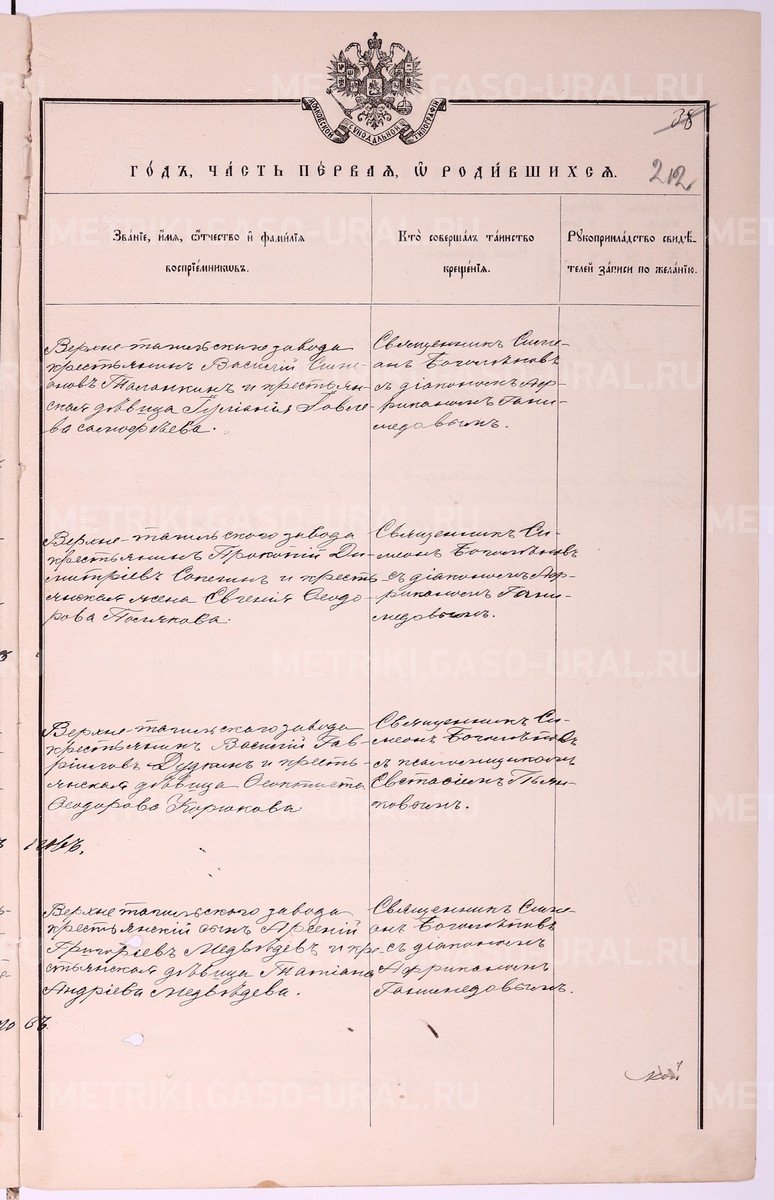 МОСКОВСКОЙ СѴНОДАЛЬНОЙ ТИПОГРАФІИ
38
212
ГО́ДЪ, ЧА́СТЬ ПЕ́РВАЯ, Ѽ РОДИ́ВШИХСЯ.
Зва́ніе, и́мя, ѻ҆́тчество и҆ фами́лія
воспріе́мниковъ.
Кто̀ соверша́лъ та́инство
креще́нія.
Рукоприкла́дство свидѣ́-
телей за́писи по жела́нію.
Верхне тагильскаго завода
крестьянинъ Василій Симе-
оновъ Таланкинъ и крестьян-
ская дѣвица Іуліанія Павло-
ва
Священникъ Симе-
онъ Боголѣповъ
съ діакономъ Аф-
риканомъ Гани-
медовымъ.
Верхне-тагильского завода
крестьянинъ Прокопій Ди-
митріевъ Сапегинъ и кресть-
янская жена Евгенія Ѳеодо-
рова Полякова.
Священникъ Си-
меонъ Боголѣповъ
съ діакономъ Аф-
риканомъ Гани-
медовымъ.
Верхне-тагильскаго завода
крестьянинъ Василій Гав-
ріиловъ Дудкинъ и кресть-
янская дѣвица Ѳеоктиста
Ѳеодорова Корюкова
Священникъ Си-
меонъ Боголѣповъ
съ псаломщикомъ
Евстафіемъ
Верхне тагильского завода
крестьянскій сынъ Арсеній
Григорьевъ Медвѣдевъ и кре-
стьянская дѣвица Татіана
Андріева Медвѣдева.
Священникъ Симе-
онъ Боголѣповъ
съ діакономъ
Африканомъ
Ганимедовымъ.
METRIKI.GASO-URAL.RU